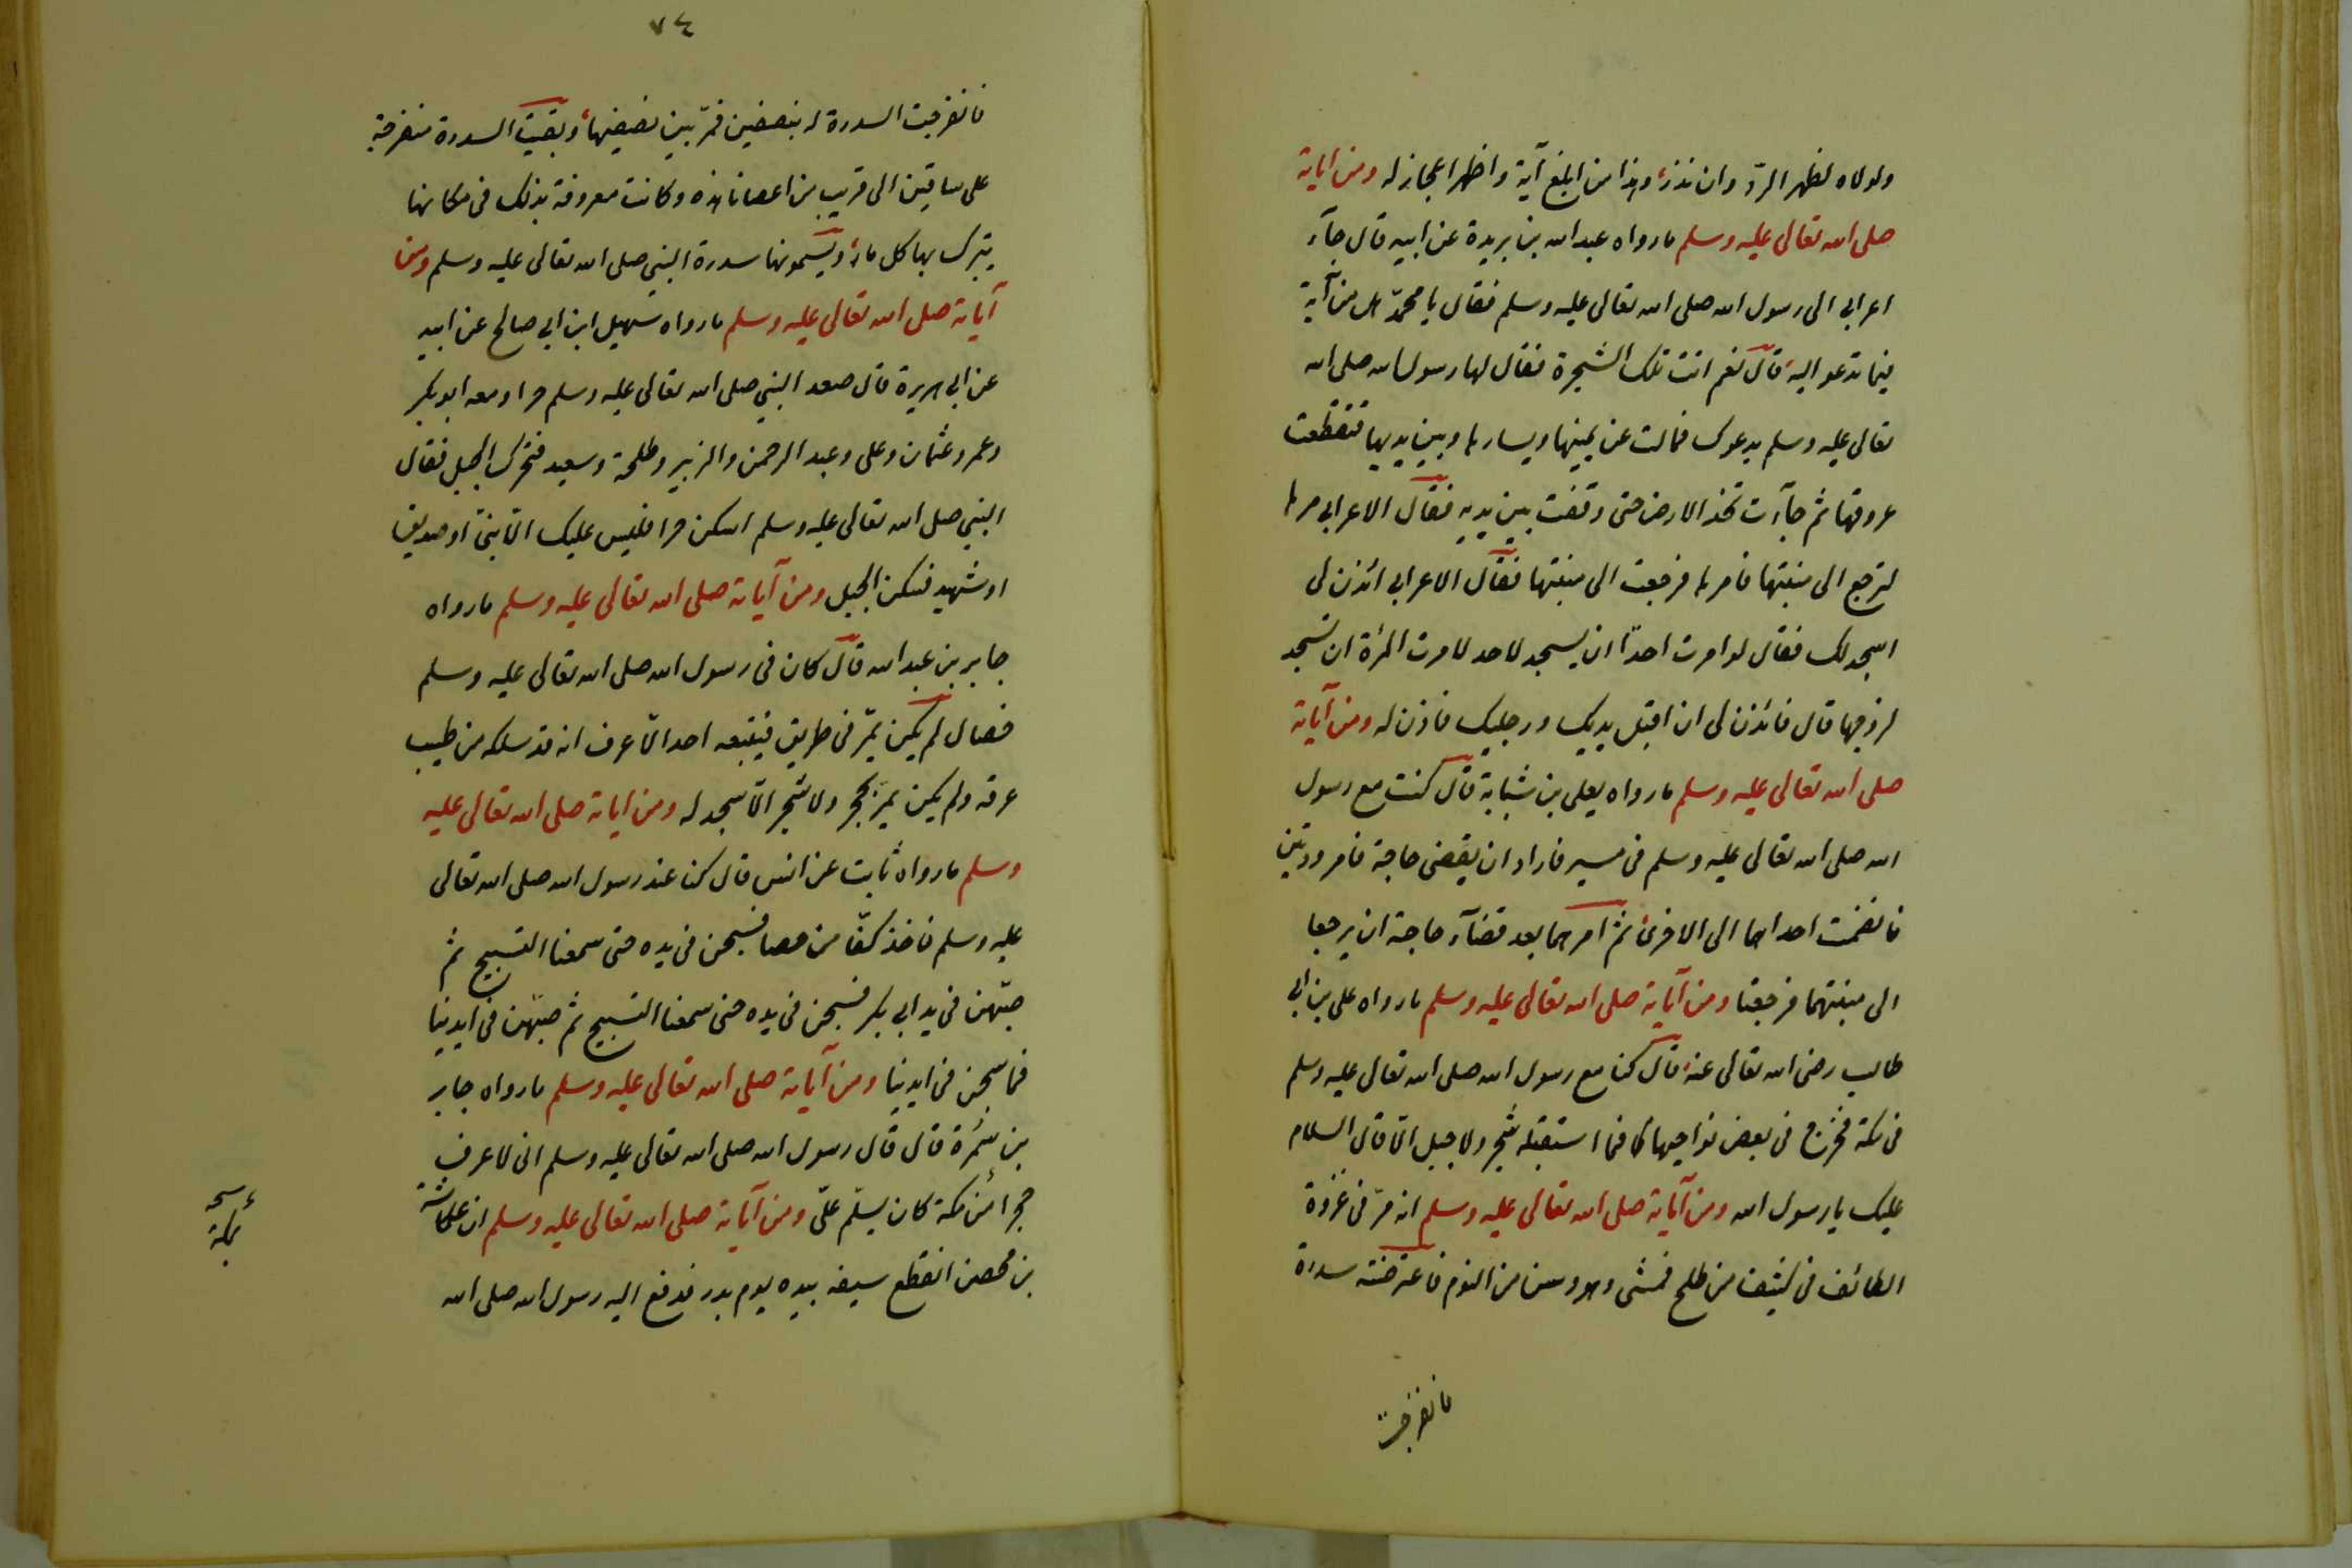 ولولاه لظهر الردّ وان نذر وهذا من ابلغ آية واظهر اعجاز له ومن اياته
صلى الله تعالى عليه وسلم مارواه عبد الله بن بريدة عن ابيه قال جآء
اعرابى الى رسول الله صلى الله تعالى عليه وسلم فقال يا محمدّ هل من آية
فيما تدعو اليه قال نعم ائت تلك الشجرة فقل لها رسول الله صلى الله
تعالى عليه وسلم يدعوك فمالت عن يمينها ويسارها وبين يديها فتقطعت
عروقها ثم جآءت تخد الارض حتى وقفت بين يديه فقال الاعرابى مرها
لترجع الى منبتها فامرها فرجعت الى منبتها فقال الاعرابى ائذن لى
اسجد لك فقال لو امرت احدًا ان يسجد لاحد لامرت المرئة ان تسجد
لزوجها قال فائذن لى ان اقبل يديك ورجليك فاذن له ومن آياته
صلى الله تعالى عليه وسلم مارواه يعلى بن شبابة قال كنت مع رسول
الله صلى الله تعالى عليه وسلم فى مسير فاراد ان يقضى حاجة فامر وديتين
فانضمت احداهما الى الاخرى ثم امرهما بعد قضآء حاجته ان يرجعا
الى منبتهما فرجعتا ومن آياته صلى الله تعالى عليه وسلم مارواه على بن ابى
طالب رضى الله تعالى عنه قال كنا مع رسول الله صلى الله تعالى عليه وسلم
فى مكة فخرج فى بعض نواحيها فما استقبله شجر ولا جبل الاّ قال السلام
عليك يا رسول الله ومن آياته صلى الله تعالى عليه وسلم انه مرّ فى غزوة
الطائف فى كثيف من طلح فمشى وهو وسن من النوم فاعترضته سدرة
فانفرجت
٧٤
فانفرجت السدرة له بنصفين فمرّ بين نصفيها وبقيت السدرة منفرجة
على ساقين الى قريب من اعصارنا هذه وكانت معروفة بذلك فى مكانها
يتبرك بها كل مارّ ويسمونها سدرة النبى صلى الله تعالى عليه وسلم ومن
آياته صلى الله تعالى عليه وسلم مارواه سهيل ابن ابى صالح عن ابيه
عن ابى هريرة قال صعد النبى صلى الله تعالى عليه وسلم حرا ومعه ابو بكر
وعمر وعثمان وعلى وعبد الرحمن والزبير وطلحة وسعيد فتحرك الجبل فقال
النبى صلى الله تعالى عليه وسلم اسكن حرا فليس عليك الاّ نبىّ او صديق
او شهيد فسكن الجبل ومن آياته صلى الله تعالى عليه وسلم مارواه
جابر بن عبد الله قال كان فى رسول الله صلى الله تعالى عليه وسلم
خصال لم يكن يمرّ فى طريق فيتبعه احد الاّ عرف انه قد سلكه من طيب
عرقه ولم يكن يمرّ بحجر ولا شجر الاّ سجد له ومن اياته صلى الله تعالى عليه
وسلم مارواه ثابت عن انس قال كنا عند رسول الله صلى الله تعالى
عليه وسلم فاخذ كفّا من حصا فسبحن فى يده حتى سمعنا التسبيح ثم
صبّهن فى يد ابى بكر فسبحن فى يده حتى سمعنا التسبيح ثم صبّهن فى ايدينا
فما سبحن فى ايدينا ومن آياته صلى الله تعالى عليه وسلم مارواه جابر
بن سمُرة قال قال رسول الله صلى الله تعالى عليه وسلم انى لاعرف
حجرا من مكة كان يسلّم علىّ ومن آياته صلى الله تعالى عليه وسلم ان عكاشة
بن محصن انقطع سيفه بيده يوم بدر فدفع اليه رسول الله صلى الله
بمكة